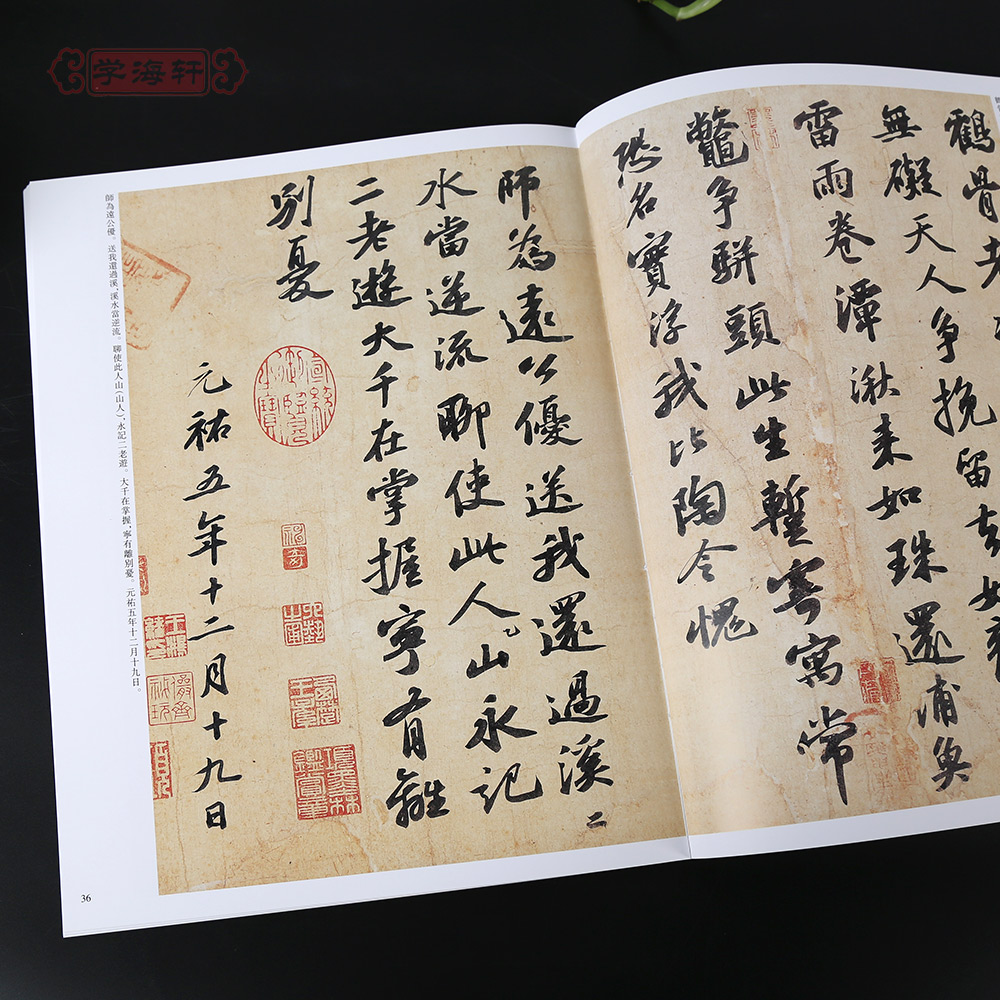 学海轩
鶴骨老
無礙天人争挽留去如
雷雨卷潭湫来如珠還浦魚
鼈争駢頭此生暫寄寓常
恐名實浮我比陶令愧
師為遠公優送我還過溪
二
水當逆流聊使此人山永記
二老遊大千在掌握寧有離
别憂
元祐五年十二月十九日
師為遠公優。送我還過溪,溪水當逆流。聊使此人山(山人),永記二老遊。大千在掌握,寧有離别憂。元祐五年十二月十九日。
36